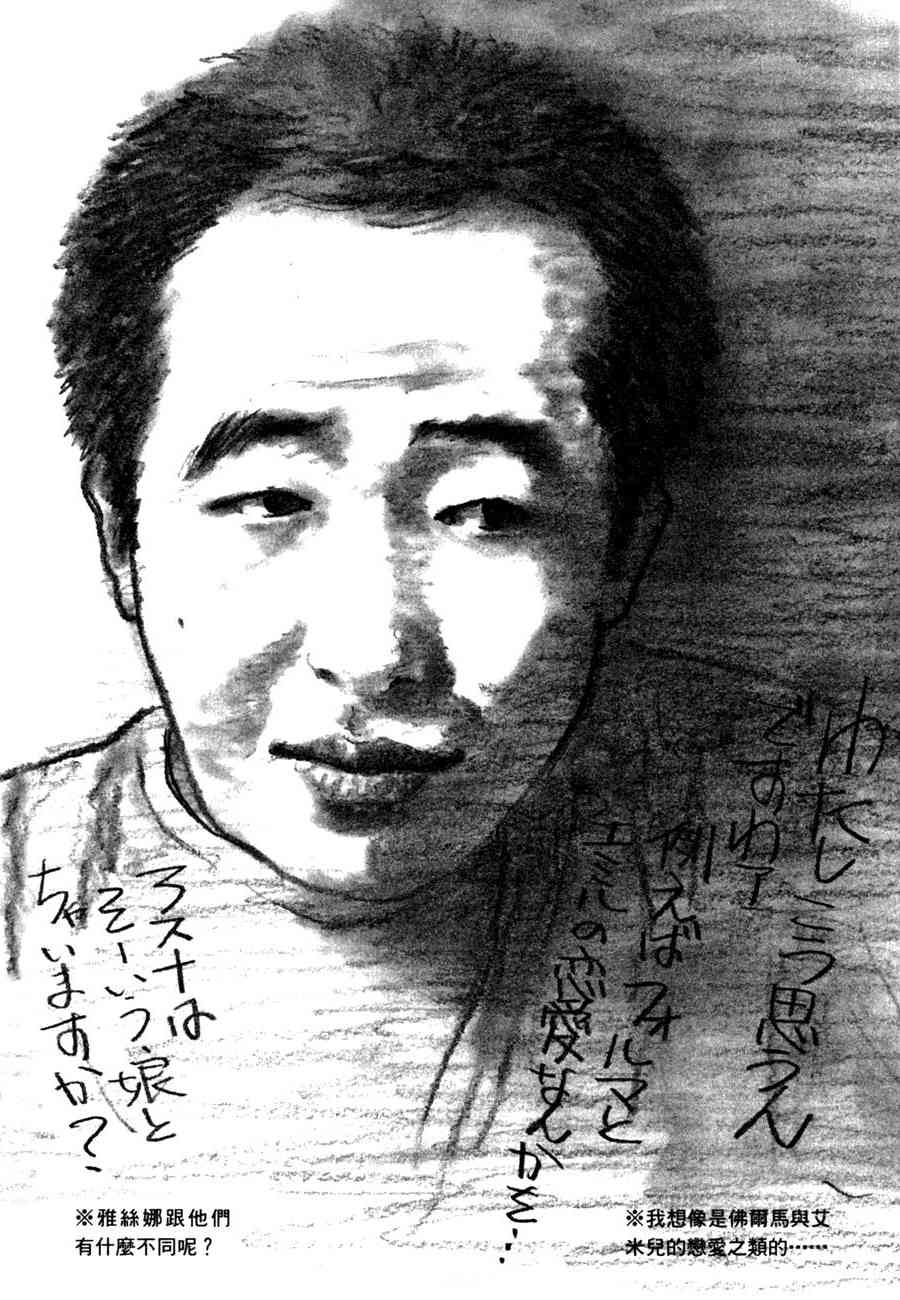 わたしこう思うん
ですわア
例えばフォルマと
エミルの恋愛なんかを…
ヤスナは
そーいう娘と
ちゃいますか？
※我想像是佛爾馬與艾
米兒的戀愛之類的⋯⋯
※雅絲娜跟他們
有什麼不同呢？